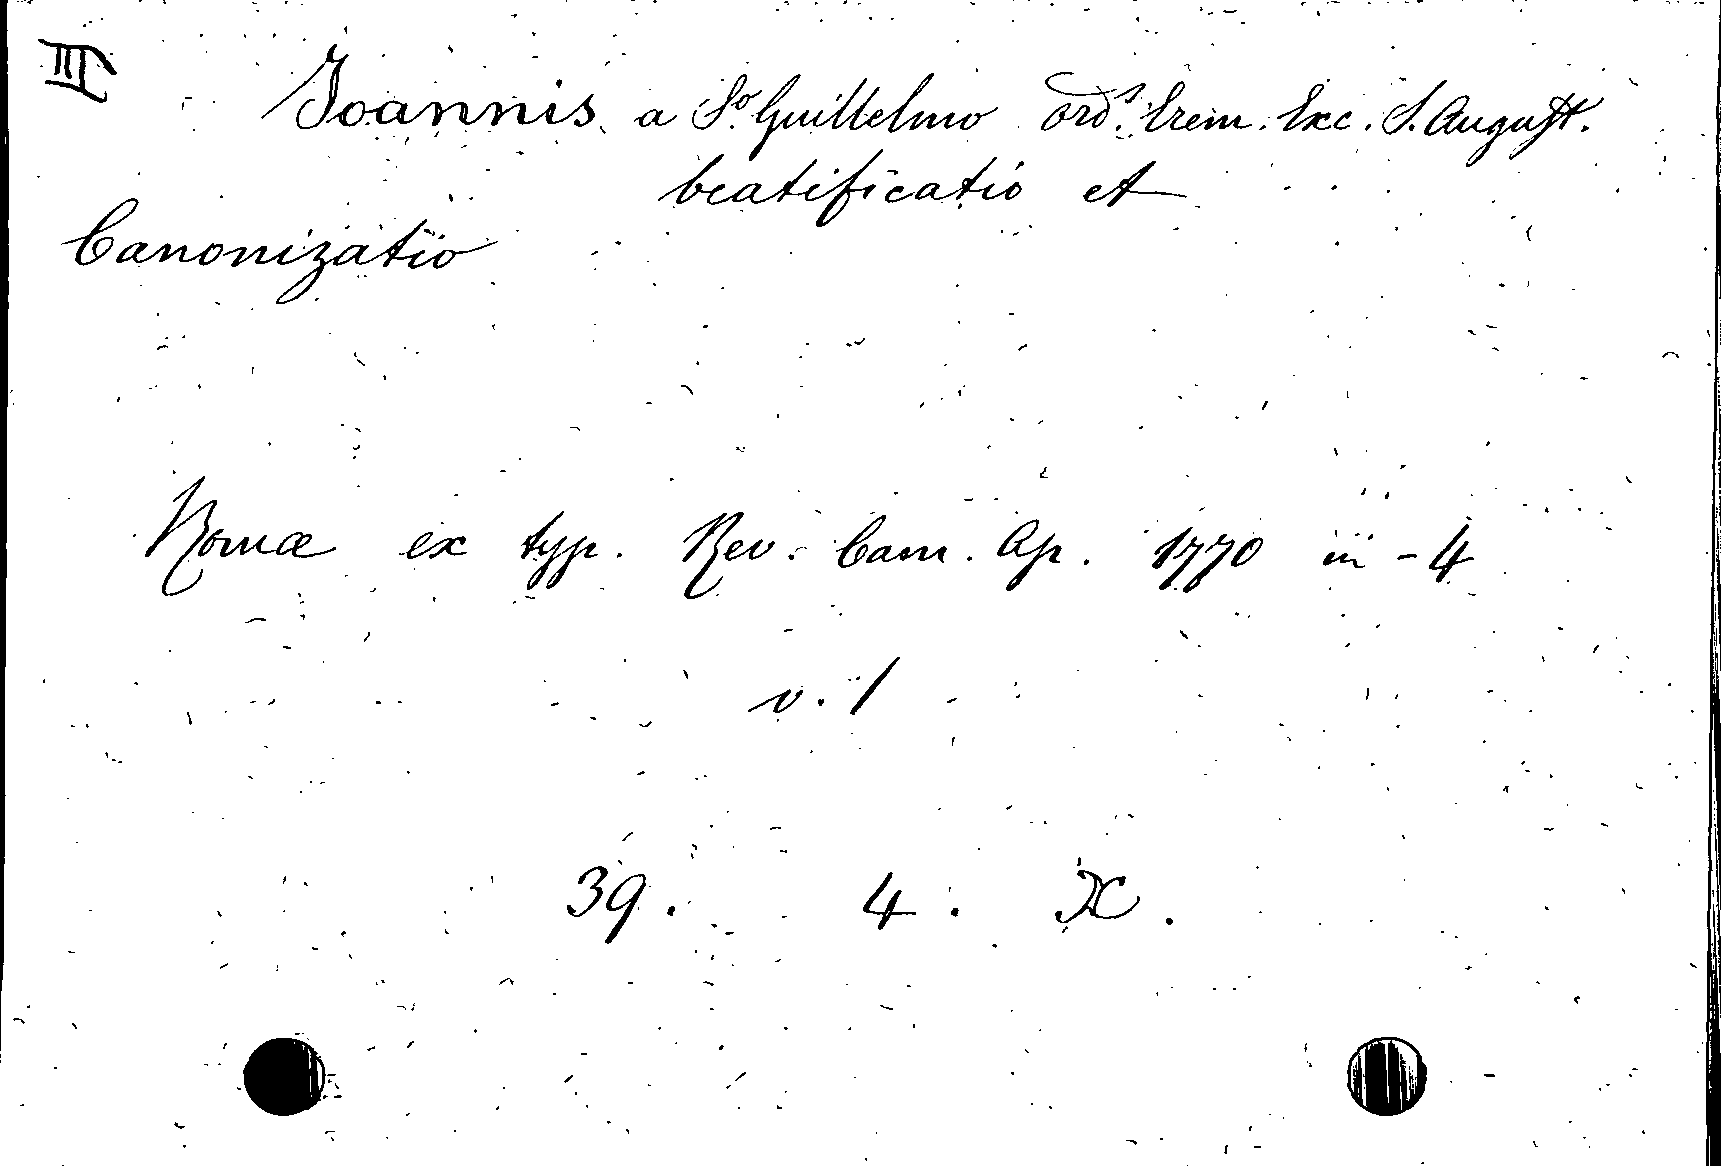 III
Joannis a Sº. Guillelmo ord.s Erem. Exc. S. August.
beatificatio et
Canonizatio
Romæ ex typ. Rev. Cam. Ap. 1770 in-4
v. 1
39. 4. X.